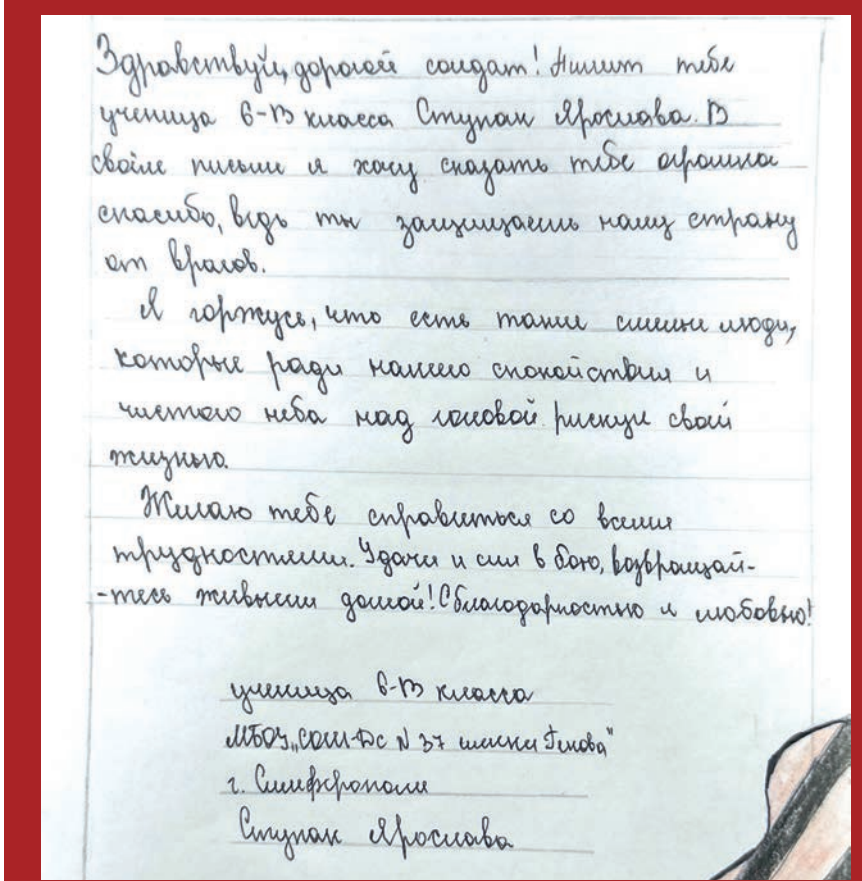 Здравствуй, дорогой солдат! Пишет тебе
ученица 6-В класса Ступак Ярослава. В
своём письме я хочу сказать тебе огромное
спасибо, ведь ты защищаешь нашу страну
от врагов.
Я горжусь, что есть такие смелые люди,
которые ради нашего спокойствия и
чистого неба над головой рискуя своей
жизнью.
Желаю тебе справиться со всеми
трудностями. Удачи и сил в бою, возвращай-
-тесь живыми домой! С благодарностью и любовью!
ученица 6-В класса
МБОУ „СОШ-ДС N 37 имени Генова"
г. Симферополь
Ступак Ярослава